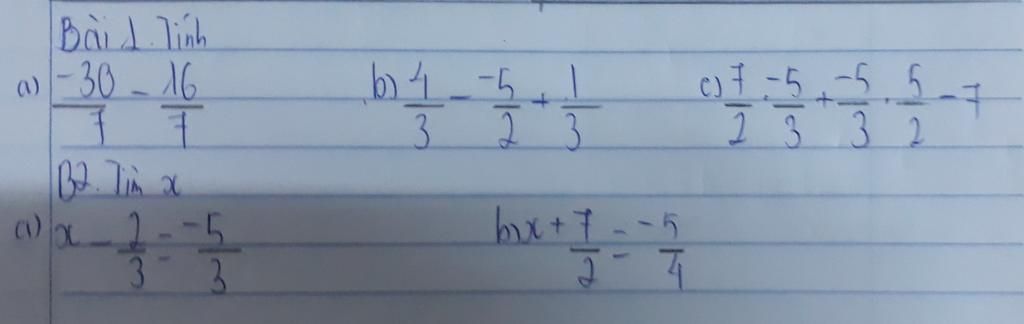 Bài 1. Tính
a) -30/7 - 16/7 b) 4/3 - -5/2 + 1/3 c) 7/2 . -5/3 + -5/3 . 5/2 - 7
B2. Tìm x
a) x - 2/3 = -5/3 b) x + 7/2 = -5/4